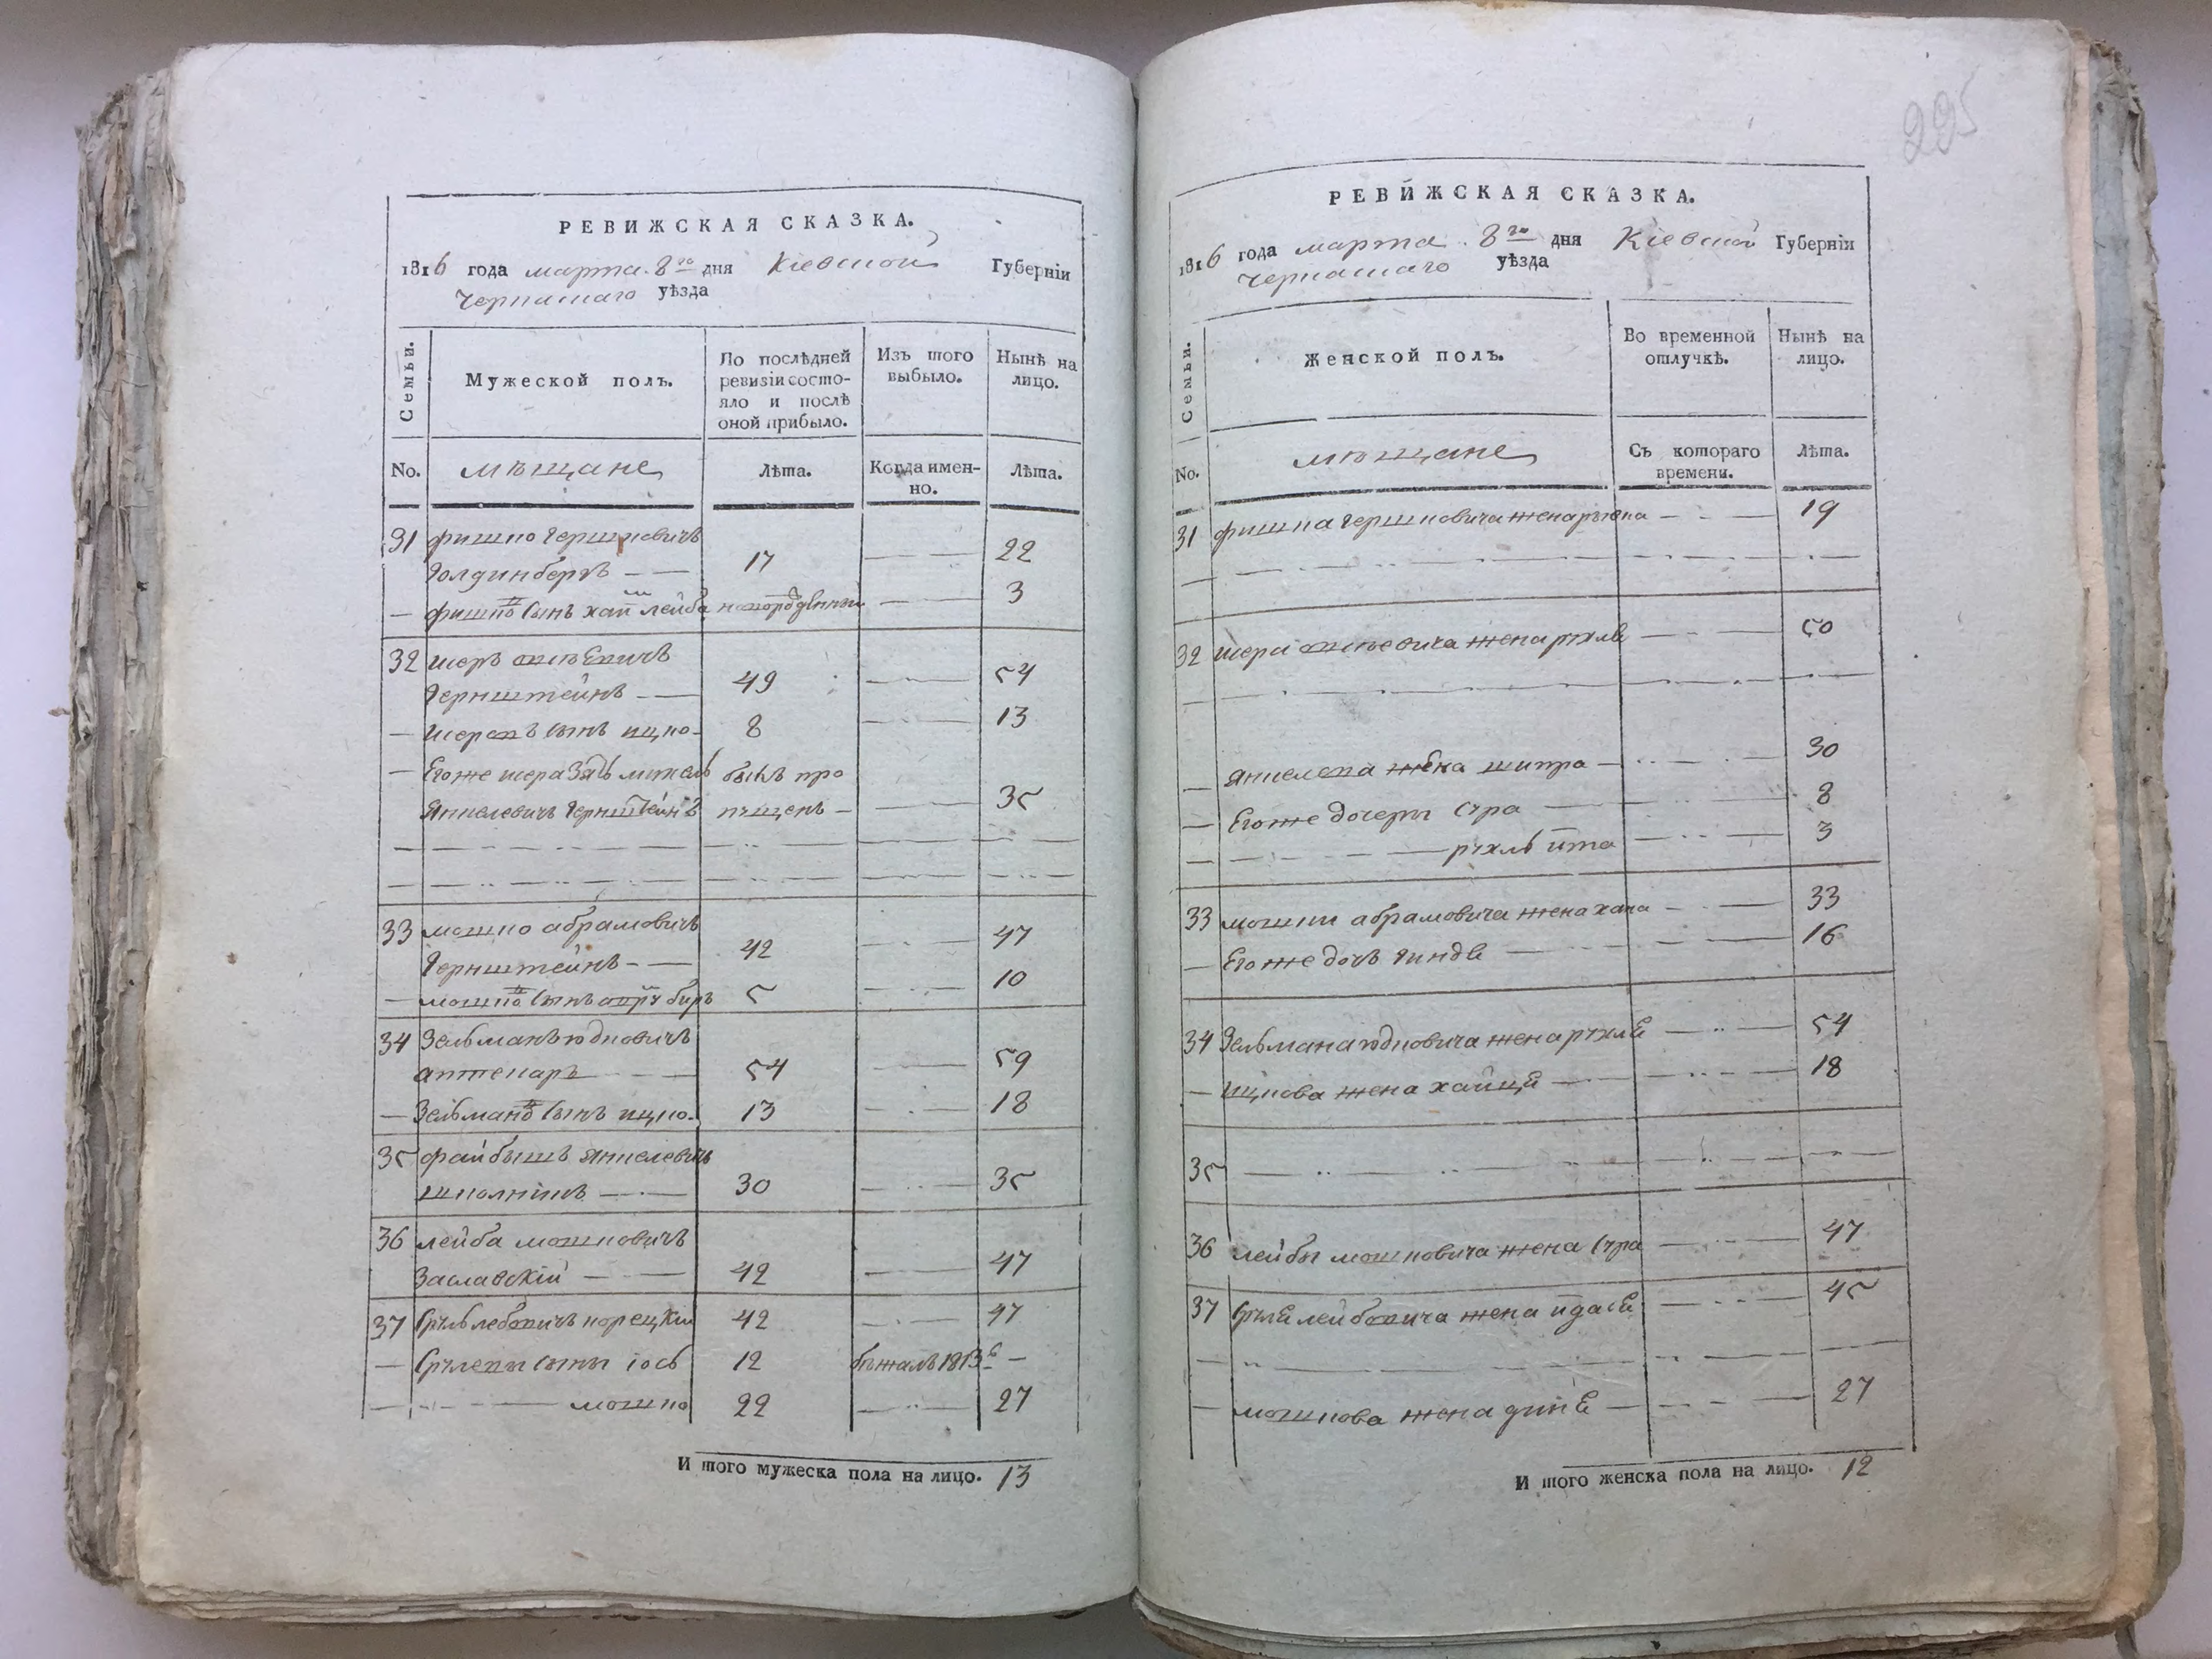 225
РЕВИЖСКАЯ СКАЗКА.
1816 года марта 8го дня Кіевской Губерніи
Черкаскаго уѣзда
Семьи.
Мужеской полъ.
По послѣдней ревизіи состояло и послѣ оной прибыло.
Изъ того выбыло.
Нынѣ на лицо.
No.
мѣщане
Лѣта.
Когда именно.
Лѣта.
31 фишко Гершковичъ
Голдинберъ — — 17 — — 22
— фишкѡ сынъ хаи лейба новорожденны — — 3
32 шеръ
Гернштейнъ — — 49 — — 54
— сынъ ицко 8 — — 13
— Егоже шера зять былъ про
Янкелевичъ Гернштейнъ пущенъ — — — 35
33 мошко абрамовичъ
Гернштейнъ — — 42 — — 47
— мошкѡ сынъ 5 — — 10
34 Зельманъ юдковичъ
аптекаръ — — 54 — — 59
— Зельманѡ сынъ ицко 13 — — 18
35 файбышъ Янкелевичъ
шполнікъ — — 30 — — 35
36 лейба мошковичъ
Заславскій — — 42 — — 47
37 Сруль лебовичъ корецкій 42 — — 47
— Срулевы сыны іось 12 бѣжалъ 1813г —
— — — мошко 22 — — 27
И того мужеска пола на лицо. 13
РЕВИЖСКАЯ СКАЗКА.
1816 года марта 8го дня Кіевской Губерніи
Черкаскаго уѣзда
Семьи.
Женской полъ.
Во временной отлучкѣ.
Нынѣ на лицо.
No.
мѣщане
Съ котораго времени.
Лѣта.
31 фишка Гершковича жена — — 19
32 жена рухлѣ — — 50
— Янкелева жена шипра — — 30
— Егоже дочеры сура — — 8
— — — рухль ита — — 3
33 мошки абрамовича жена хана — — 33
— Егоже дочь гиндѣ — — 16
34 Зельмана юдковича жена рухлѣ — — 54
— ицкова жена хайце — — 18
35 — —
36 лейбы мошковича жена сура — — 47
37 Срулѣ лейбовича жена идасѣ — — 45
— мошкова жена динѣ — — 27
И того женска пола на лицо. 12